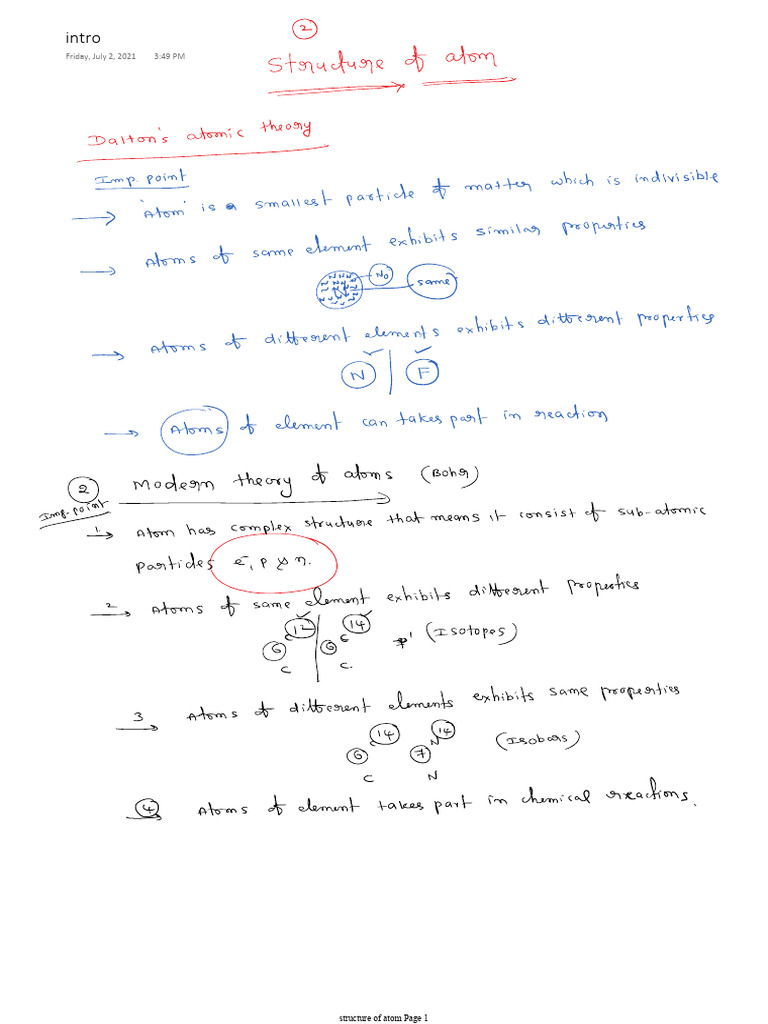 intro
Friday, July 2, 2021 3:49 PM
2
Structure of atom
Dalton's atomic theory
Imp. point
'Atom' is a smallest particle of matter which is indivisible
Atoms of same element exhibits similar properties
N N N N N N N N N N N N
No
same
Atoms of different elements exhibits different properties
N | F
Atoms of element can takes part in reaction
2 Modern theory of atoms (Bohr)
Imp. point
1 Atom has complex structure that means it consist of sub-atomic
particles e⁻, p & n.
2 Atoms of same element exhibits different properties
12 14
C C
6 6 (Isotopes)
C C.
3 Atoms of different elements exhibits same properties
14 14
C N
6 7 (Isobars)
C N
4 Atoms of element takes part in chemical reactions.
structure of atom Page 1